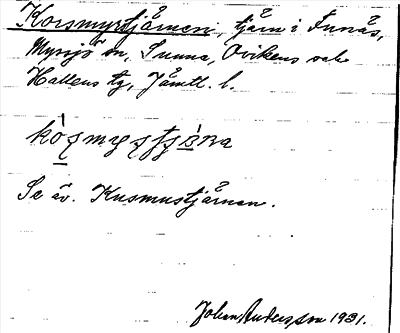 Korsmyrtjärnen, tjärn i Funäs,
Myssjö sn, Sunne, Ovikens och
Hallens tg, Jämtl. l.
Se äv. Kusmustjärnen.
Johan Andersson 1931.